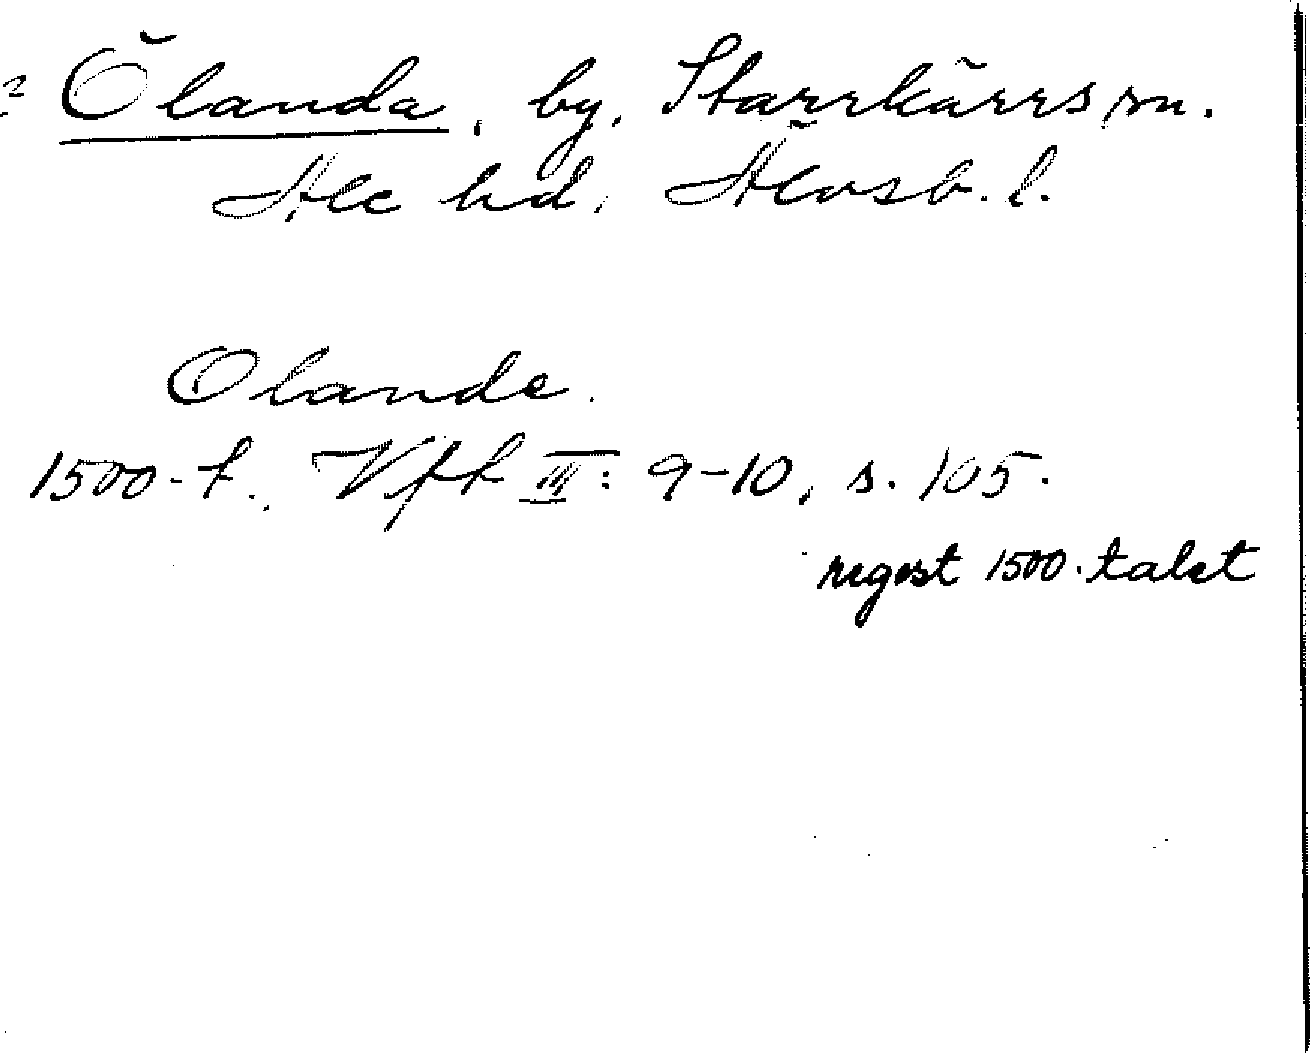 Ölanda, by, Starrkärrs sn.
Ale hd, Älvsb. l.
Olande.
1500-t. Vfft III: 9-10, s. 105.
regest 1500-talet